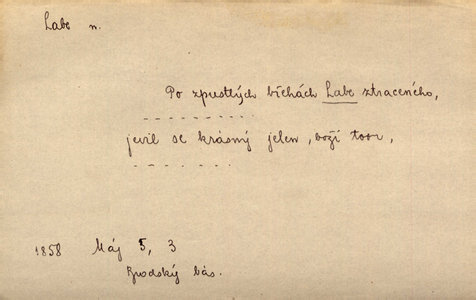 Labe n.
Po zpustlých březích Labe ztraceného,
- - - - - - - - - -
jevil se krásný jelen, boží tvor,
- - - - - - -
1858 Máj 5, 3
Brodský bás.